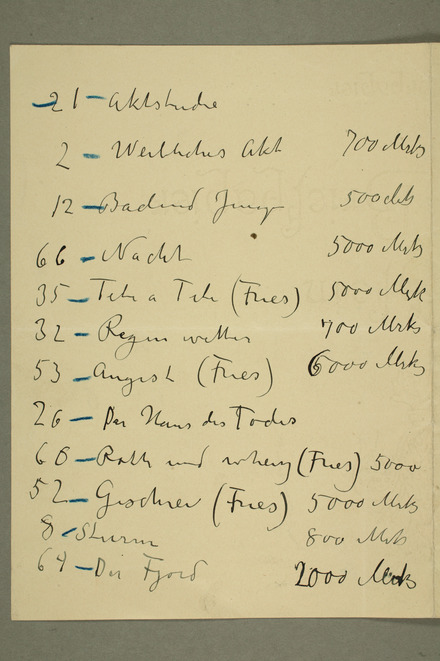 21 - Aktstudie
2 - Weibliches Akt 700 Mrks
12 - Badend Junge 500 Mrks
66 - Nacht 5000 Mrks
35 - Tete a Tete (Fries) 5000 Mrk
32 - Regen wetter 700 Mrks
53 - Angist (Fries) 6000 Mrks
26 - Das Haus des Todes
60 - Roth und (Fries) 5000
52 - Geschrei (Fries) 5000 Mrks
8 - Sturm 800 Mrk
64 - Der Fjord 2000 Mrks